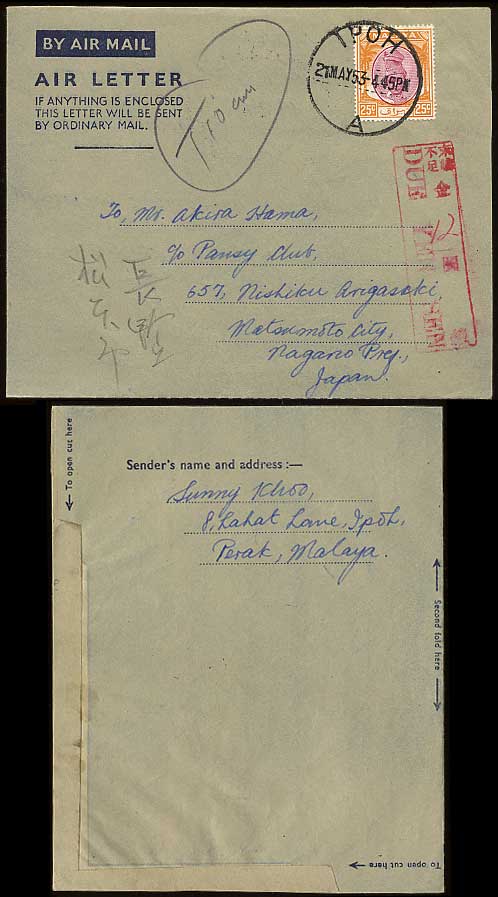 BY AIR MAIL
AIR LETTER
IF ANYTHING IS ENCLOSED
THIS LETTER WILL BE SENT
BY ORDINARY MAIL.
T10 cm
IPOH
MAY53-4.45PM
A
25c 25c
不足
金
DUE
12
To, Mr. Akira Hama,
c/o Pansy Club,
657, Nishiku Arigasaki,
Matsumoto City,
Nagano Pref.,
Japan.
長野
松本
To open cut here
Sender's name and address :—
Sunny Khoo,
8, Lahat Lane, Ipoh,
Perak, Malaya.
Second fold here
To open cut here